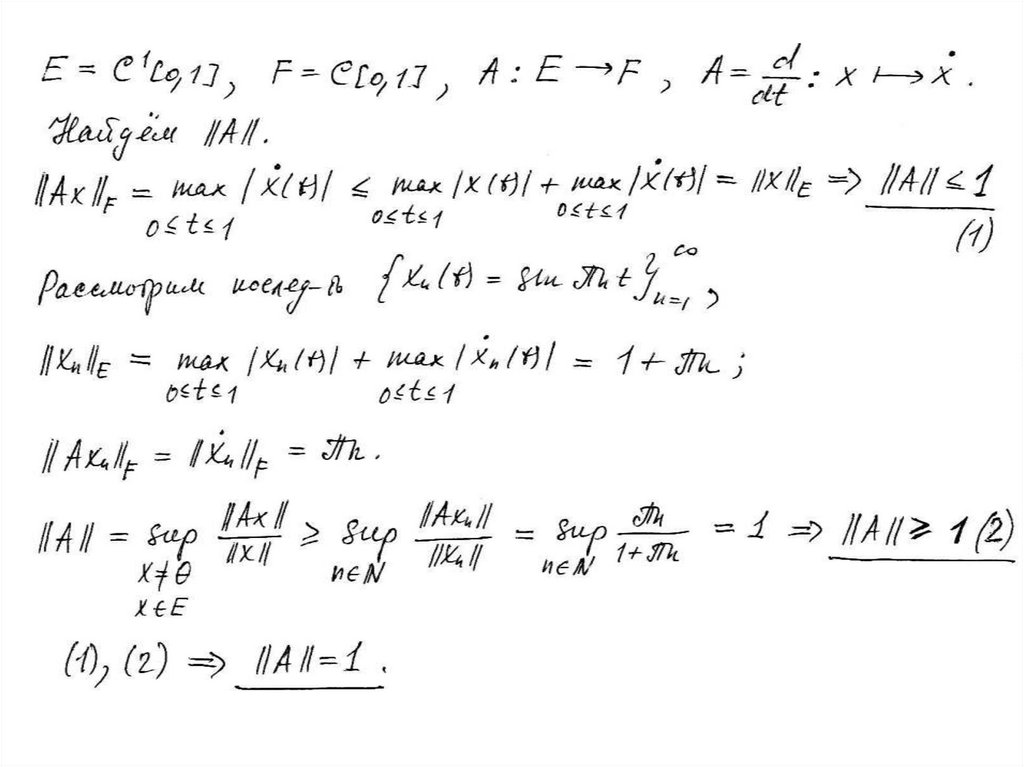 E = C¹[0,1], F = C[0,1], A : E → F, A = d/dt : x ↦ ẋ.
Найдём ‖A‖.
‖Ax‖_F = max_{0≤t≤1} |ẋ(t)| ≤ max_{0≤t≤1} |x(t)| + max_{0≤t≤1} |ẋ(t)| = ‖x‖_E ⇒ ‖A‖ ≤ 1 (1)
Рассмотрим послед-ть {xₙ(t) = sin πnt}_{n=1}^∞,
‖xₙ‖_E = max_{0≤t≤1} |xₙ(t)| + max_{0≤t≤1} |ẋₙ(t)| = 1 + πn;
‖Axₙ‖_F = ‖ẋₙ‖_F = πn.
‖A‖ = sup_{x≠θ, x∈E} ‖Ax‖/‖x‖ ≥ sup_{n∈N} ‖Axₙ‖/‖xₙ‖ = sup_{n∈N} πn/(1+πn) = 1 ⇒ ‖A‖ ≥ 1 (2)
(1), (2) ⇒ ‖A‖ = 1.